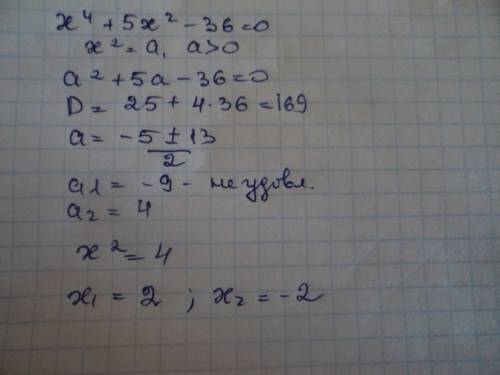 x⁴ + 5x² - 36 = 0
x² = a, a>0
a² + 5a - 36 = 0
D = 25 + 4·36 = 169
a = -5 ± 13 / 2
a1 = -9 - не удовл.
a₂ = 4
x² = 4
x₁ = 2 ; x₂ = -2